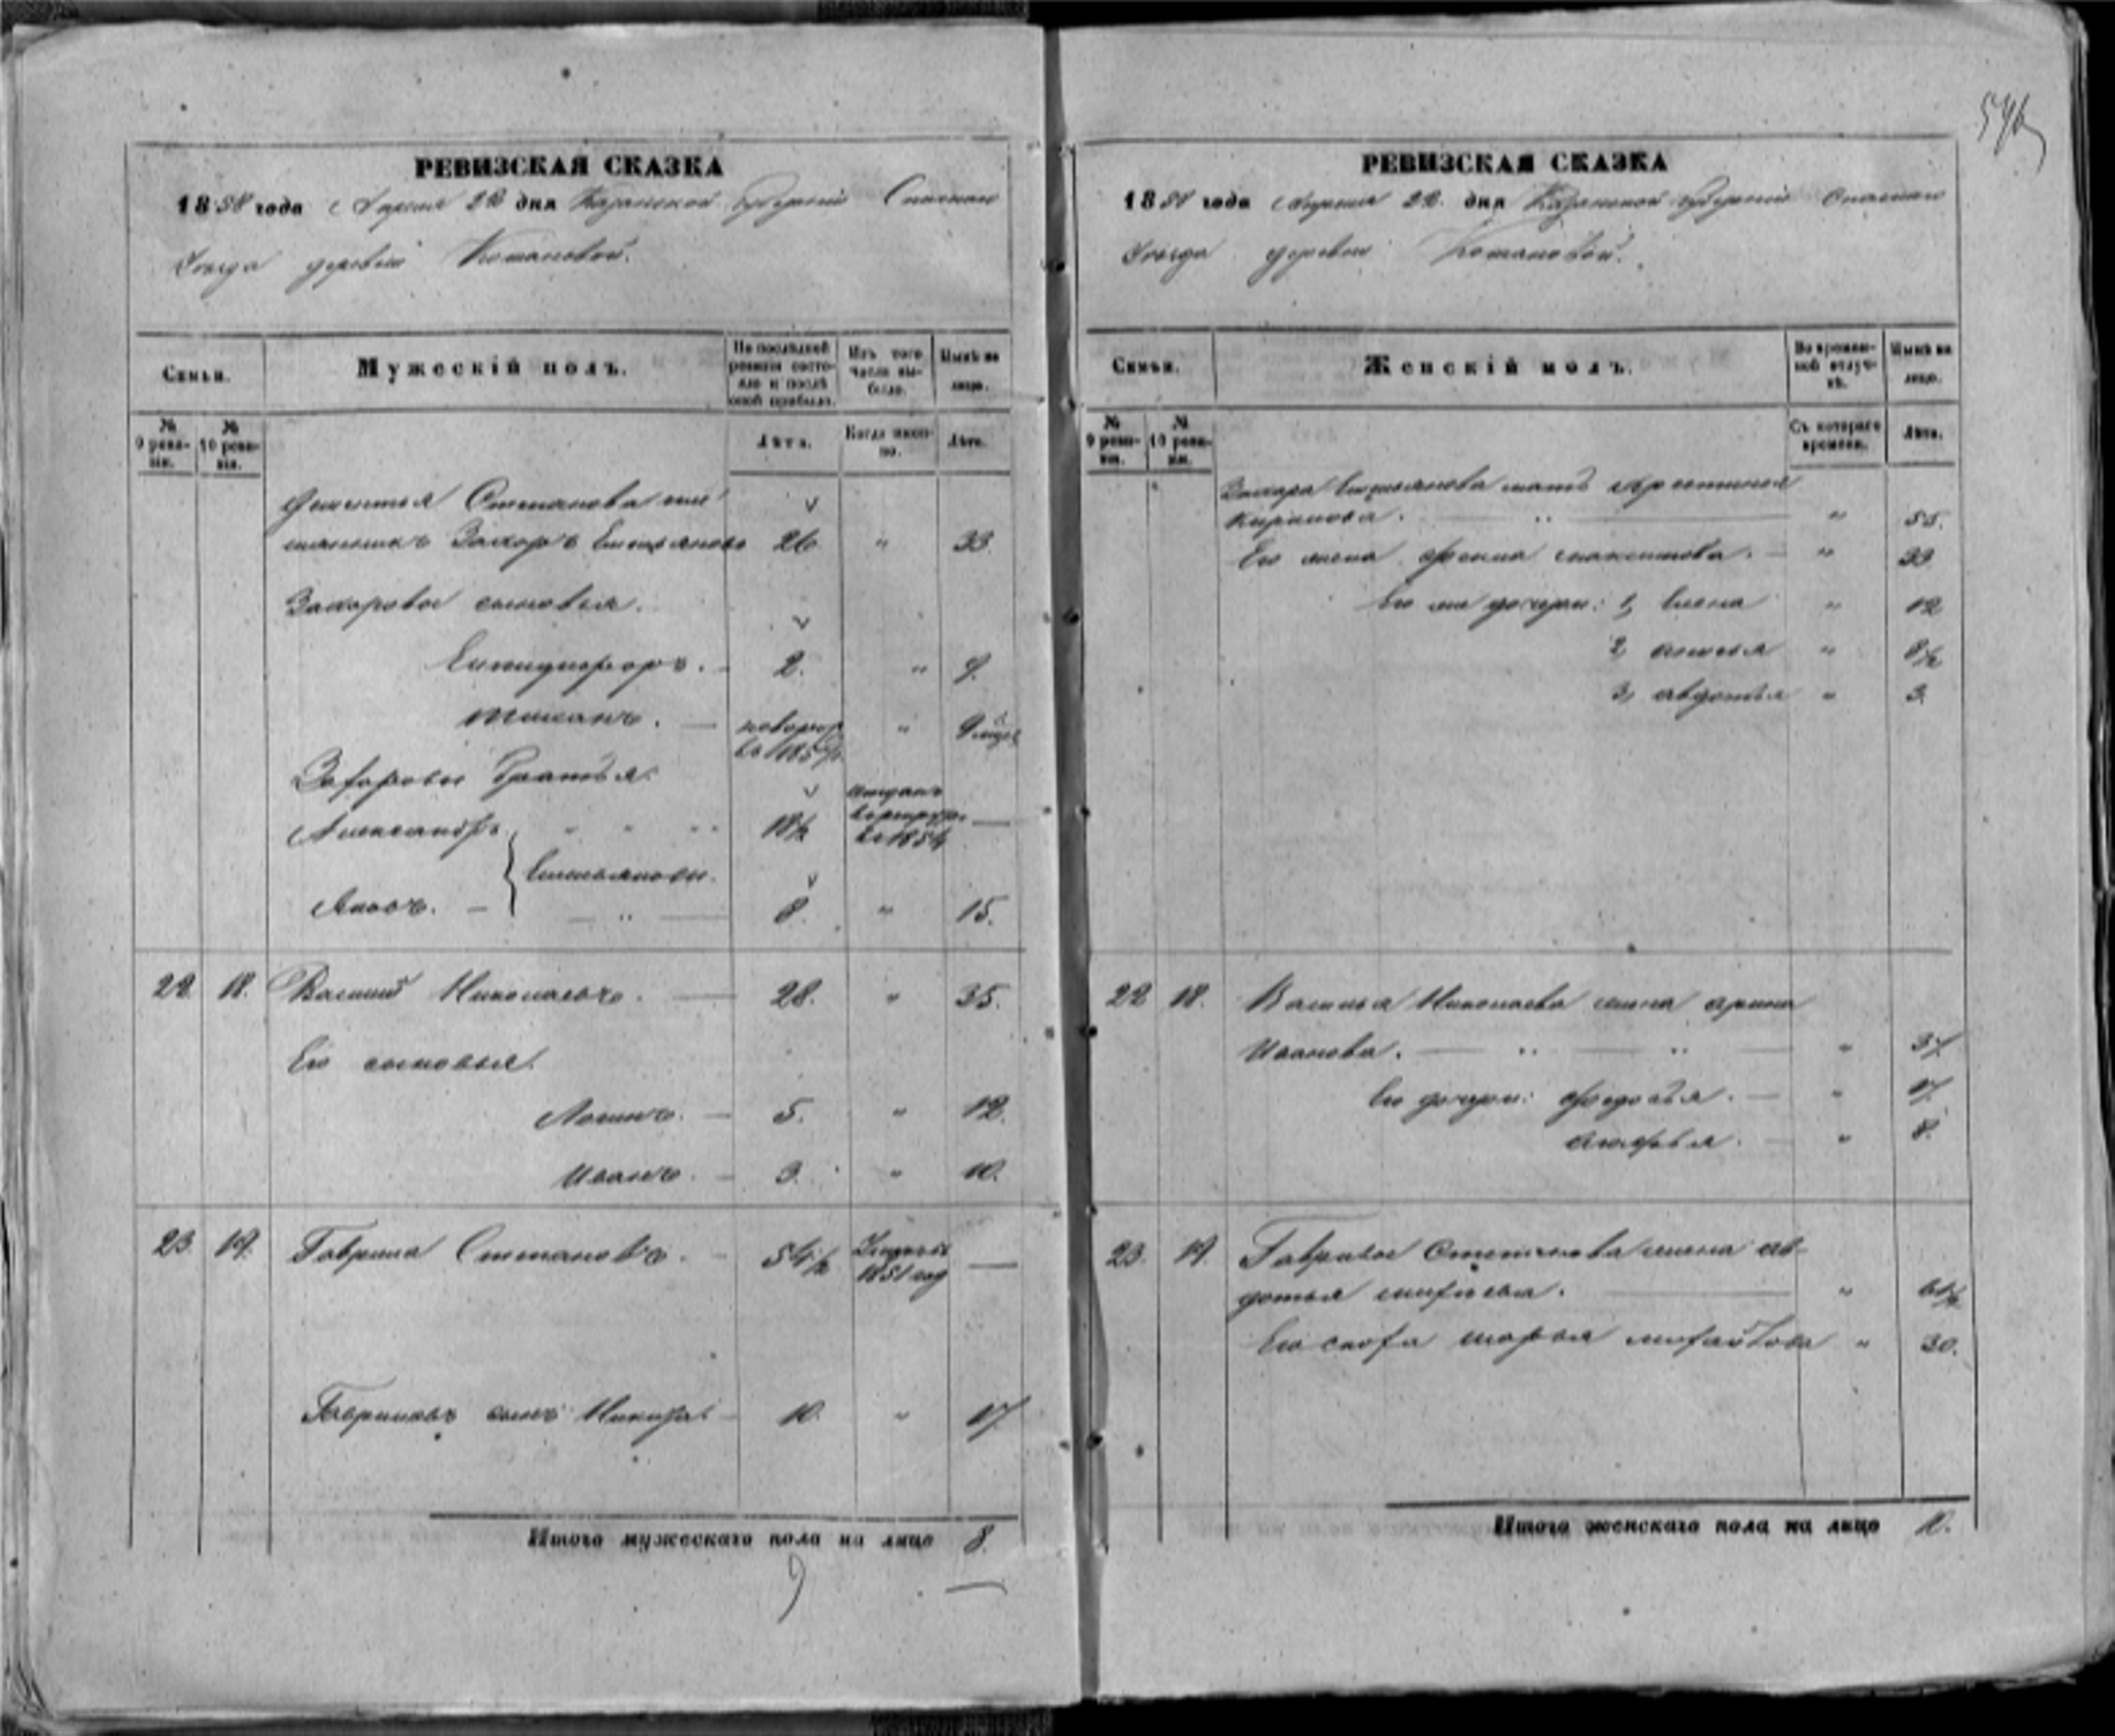 РЕВИЗСКАЯ СКАЗКА
1858 года Апреля 22 дня Казанской Губернии Спаскаго
Уѣзда деревни Комановой.
Семьи.
Мужескій полъ.
По послѣдней ревизіи состояло и послѣ оной прибыло.
Изъ того числа выбыло.
Нынѣ на лицо.
№ 9 ревизіи.
№ 10 ревизіи.
Лѣта.
Когда именно.
Лѣта.
Степанова пле
мянникъ Захаръ Емельяновъ 26 " 33.
Захаровы сыновья.
Елпидифоръ. 2. " 9.
новорож "
въ 185
Захаровы братья.
Александръ " " " 18½ отданъ в рекруты въ 1854 —
Емельяновы.
Яковъ. — " — 8. " 15.
22. 18. Василий Николаевъ. — 28. " 35.
Его сыновья.
Логинъ. — 5. " 12.
Иванъ. — 3. " 10.
23. 19. Гаврила Степановъ. — 54½ Умеръ 1851 год —
Гавриловъ сынъ — 10. " 17.
Итого мужескаго пола на лицо 8.
9
РЕВИЗСКАЯ СКАЗКА
1858 года Апреля 22. дня Казанской Губернии Спаскаго
Уѣзда деревни Комановой.
Семьи.
Женскій полъ.
Во временной отлучкѣ.
Нынѣ на лицо.
№ 9 ревизіи.
№ 10 ревизіи.
Съ котораго времени.
Лѣта.
Захара Емельянова мать
Кирилова. — " — " 55.
Его жена Фекла Максимова. — " 33
Его же дочери: 1, Елена " 12
2, " 8½
3, Авдотья " 3.
22 18. Василья Николаева жена Арина
Иванова. — " — " — " 37.
Его дочери: Федосья. — " 17.
— " 8.
23. 19. Гаврилы Степанова жена Ав-
дотья — "
Его сноха Марья Михайлова " 30.
Итого женскаго пола на лицо 10.